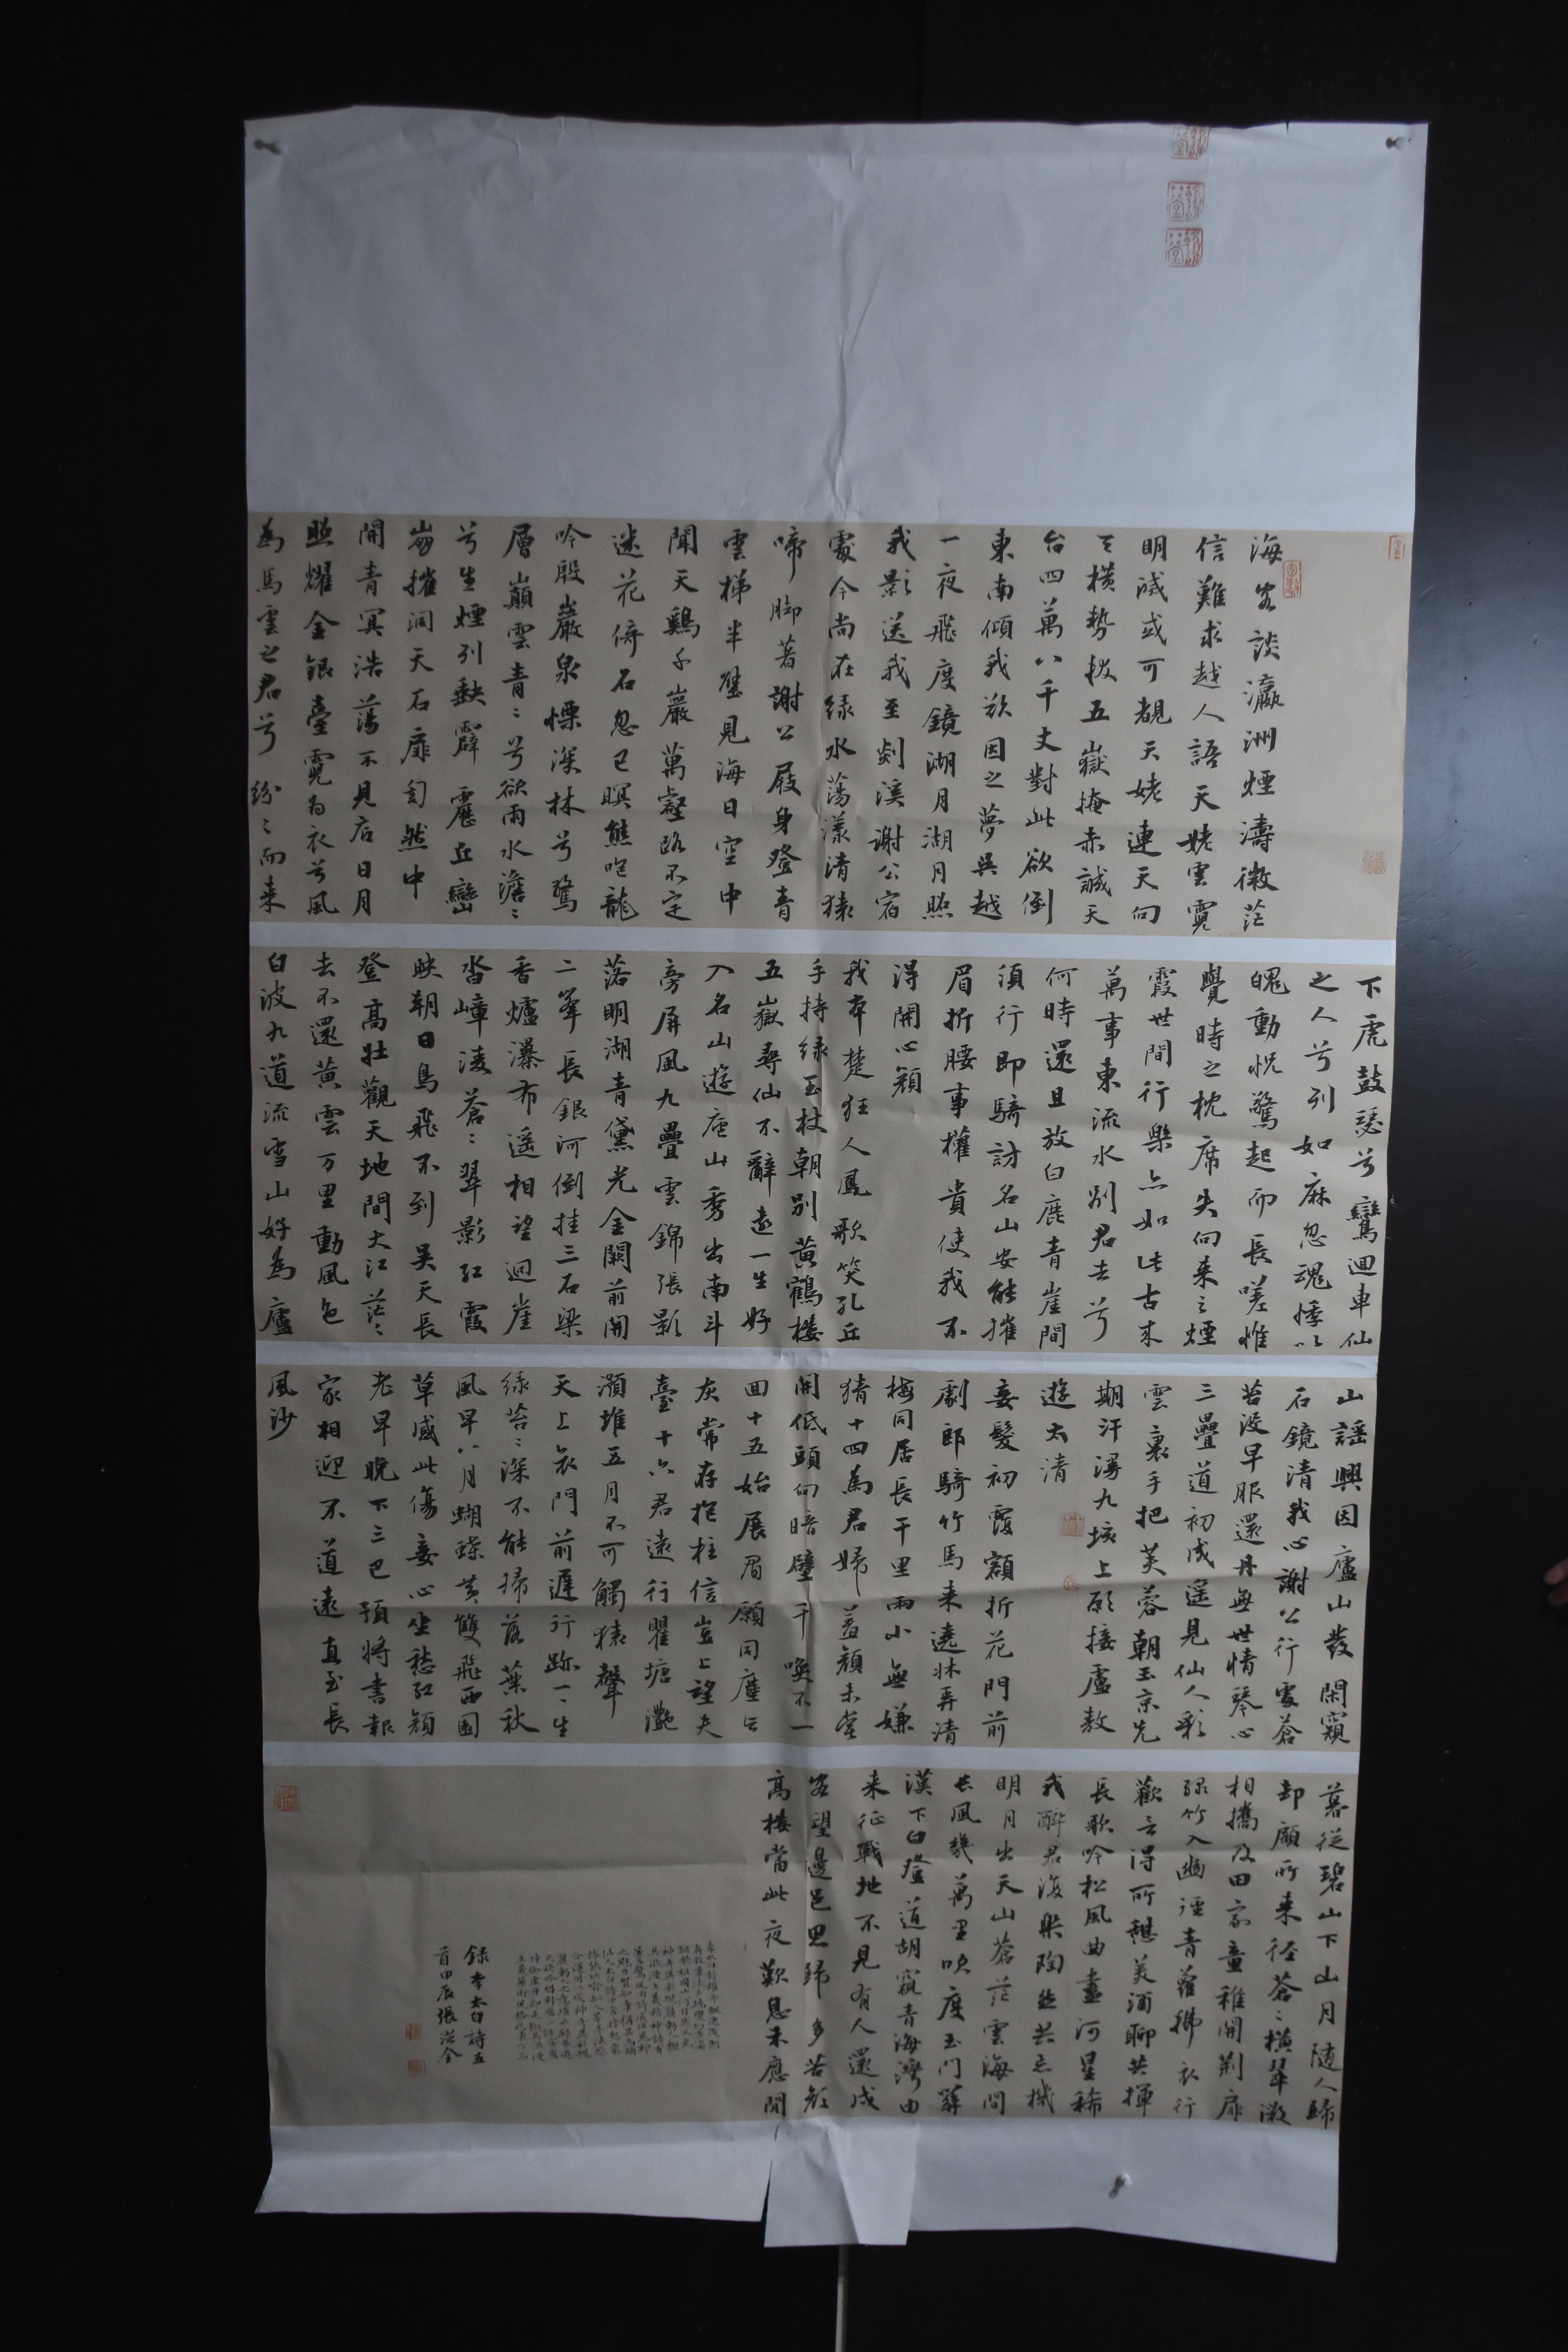 海客談瀛洲煙濤微茫
信難求越人語天姥雲霓
明滅或可覩天姥連天向
天橫勢拔五嶽掩赤誠天
台四萬八千丈對此欲倒
東南傾我欲因之夢吳越
一夜飛度鏡湖月湖月照
我影送我至剡溪謝公宿
處今尚在綠水蕩漾清猿
啼脚著謝公屐身登青
雲梯半壁見海日空中
聞天鷄千巖萬壑路不定
迷花倚石忽已暝熊咆龍
吟殷巖泉慄深林兮驚
層巔雲青〻兮欲雨水澹〻
兮生煙列缺霹靂丘巒
崩摧洞天石扉訇然中
開青冥浩蕩不見底日月
照耀金銀臺霓為衣兮風
為馬雲之君兮紛〻而来
下虎鼓瑟兮鸞迴車仙
之人兮列如麻忽魂悸以
魄動怳驚起而長嗟惟
覺時之枕席失向来之煙
霞世間行樂亦如此古来
萬事東流水別君去兮
何時還且放白鹿青崖間
須行即騎訪名山安能摧
眉折腰事權貴使我不
得開心顏
我本楚狂人鳳歌笑孔丘
手持綠玉杖朝別黃鶴樓
五嶽尋仙不辭遠一生好
入名山遊廬山秀出南斗
旁屏風九疊雲錦張影
落明湖青黛光金闕前開
二峯長銀河倒挂三石梁
香爐瀑布遥相望迴崖
沓嶂淩蒼〻翠影紅霞
映朝日鳥飛不到吳天長
登高壯觀天地間大江茫〻
去不還黃雲万里動風色
白波九道流雪山好為廬
山謠興因廬山發閑窺
石鏡清我心謝公行處蒼
苔沒早服還丹無世情琴心
三疊道初成遙見仙人彩
雲裏手把芙蓉朝玉京先
期汗漫九垓上願接盧敖
遊太清
妾髮初覆額折花門前
劇郎騎竹馬来遶牀弄清
梅同居長干里兩小無嫌
猜十四為君婦羞顏未嘗
開低頭向暗壁千喚不一
回十五始展眉願同塵與
灰常存抱柱信豈上望夫
臺十六君遠行瞿塘灩
澦堆五月不可觸猿聲
天上哀門前遲行跡一〻生
綠苔〻深不能掃落葉秋
風早八月蝴蝶黃雙飛西園
草感此傷妾心坐愁紅顏
老早晚下三巴預將書報
家相迎不道遠直至長
風沙
暮從碧山下山月隨人歸
却顧所来徑蒼〻橫翠微
相攜及田家童稚開荆扉
綠竹入幽徑青蘿拂衣行
歡言得所憩美酒聊共揮
長歌吟松風曲盡河星稀
我醉君復樂陶然共忘機
明月出天山蒼茫雲海間
長風幾萬里吹度玉門關
漢下白登道胡窺青海灣由
来征戰地不見有人還戍
客望邊邑思歸多苦顏
高樓當此夜歎息未應閒
錄李太白詩五
首甲辰張